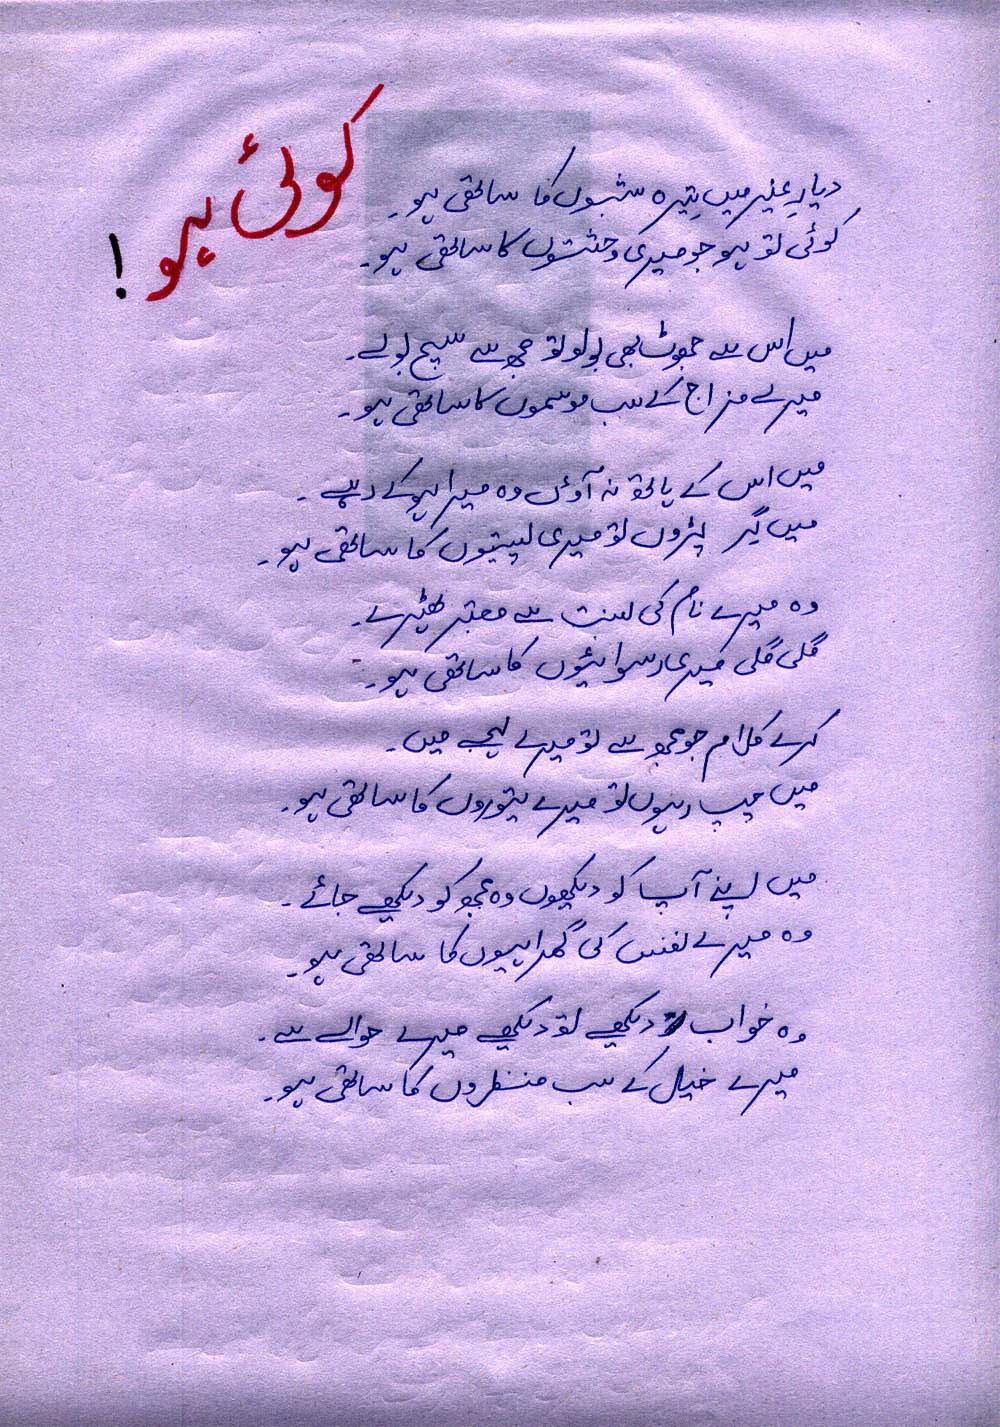 کوئی ہو!
دیارِ غیر میں تیرہ شبوں کا ساتھی ہو۔
کوئی تو ہو جو میری وحشتوں کا ساتھی ہو۔
میں اس سے جھوٹ بھی بولو تو مجھ سے سچ بولے۔
میرے مزاج کے سب موسموں کا ساتھی ہو۔
میں اس کے ہاتھ نہ آؤں وہ میرا ہو کے رہے۔
میں گِر پڑوں تو میری پستیوں کا ساتھی ہو۔
وہ میرے نام کی نسبت سے معتبر ٹھہرے۔
گلی گلی میری رسوائیوں کا ساتھی ہو۔
کرے کلام جو مجھ سے تو میرے لہجے میں۔
میں چپ رہوں تو میرے تیوروں کا ساتھی ہو۔
میں اپنے آپ کو دیکھوں وہ مجھ کو دیکھے جائے۔
وہ میرے نفس کی گمراہیوں کا ساتھی ہو۔
وہ خواب دیکھے تو دیکھے میرے حوالے سے۔
میرے خیال کے سب منظروں کا ساتھی ہو۔